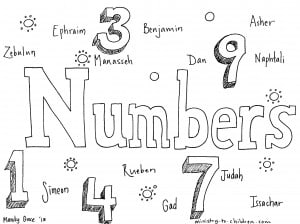 Ephraim 3 Benjamin Asher
Zebulun Manasseh Dan 9 Naphtali
Numbers
1 Simeon 4 Rueben Gad 7 Judah Issachar
Mandy Groce '10
ministry-to-children.com